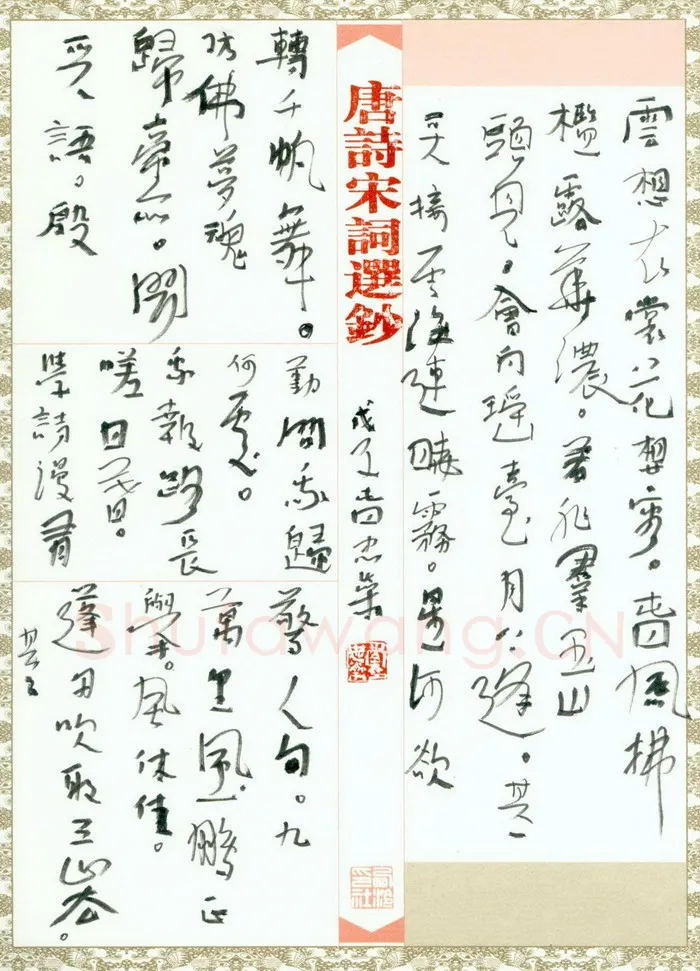 雲想衣裳花想容。春風拂
檻露華濃。若非羣玉山
頭見。會向瑤臺月下逢。其一
天接雲濤連曉霧。星河欲
唐詩宋詞選鈔
戊子春
轉千帆舞。
仿佛夢魂
歸帝所。聞
天語。殷
勤問我歸
何處。
我報路長
嗟日暮。
學詩漫有
驚人句。九
萬里風鵬正
舉。風休住。
蓬舟吹取三山去。
其二
Shufawang.CN